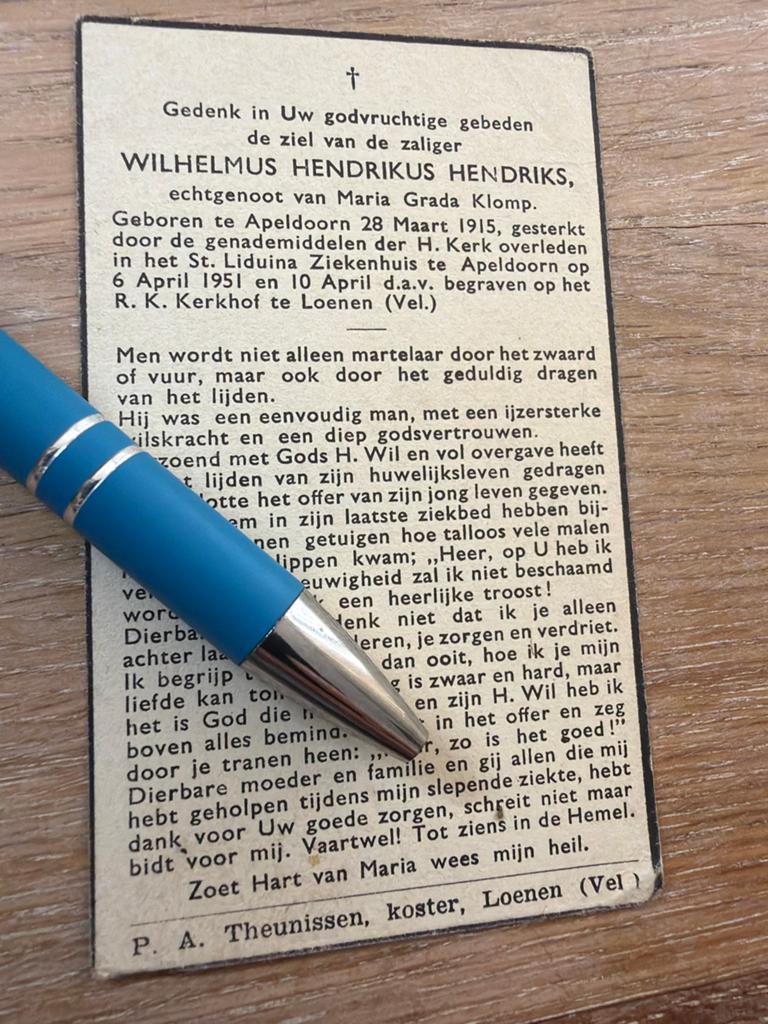 †
Gedenk in Uw godvruchtige gebeden
de ziel van de zaliger
WILHELMUS HENDRIKUS HENDRIKS,
echtgenoot van Maria Grada Klomp.
Geboren te Apeldoorn 28 Maart 1915, gesterkt
door de genademiddelen der H. Kerk overleden
in het St. Liduina Ziekenhuis te Apeldoorn op
6 April 1951 en 10 April d.a.v. begraven op het
R. K. Kerkhof te Loenen (Vel.)
Men wordt niet alleen martelaar door het zwaard
of vuur, maar ook door het geduldig dragen
van het lijden.
Hij was een eenvoudig man, met een ijzersterke
wilskracht en een diep godsvertrouwen.
met Gods H. Wil en vol overgave heeft
lijden van zijn huwelijksleven gedragen
het offer van zijn jong leven gegeven.
in zijn laatste ziekbed hebben bij-
getuigen hoe talloos vele malen
lippen kwam; „Heer, op U heb ik
eeuwigheid zal ik niet beschaamd
een heerlijke troost!
denk niet dat ik je alleen
achter je zorgen en verdriet.
Ik begrijp dan ooit, hoe ik je mijn
liefde kan is zwaar en hard, maar
het is God die en zijn H. Wil heb ik
boven alles in het offer en zeg
door je tranen heen: zo is het goed!”
Dierbare moeder en familie en gij allen die mij
hebt geholpen tijdens mijn slepende ziekte, hebt
dank voor Uw goede zorgen, schreit niet maar
bidt voor mij. Vaartwel! Tot ziens in de Hemel.
Zoet Hart van Maria wees mijn heil.
P. A. Theunissen, koster, Loenen (Vel)